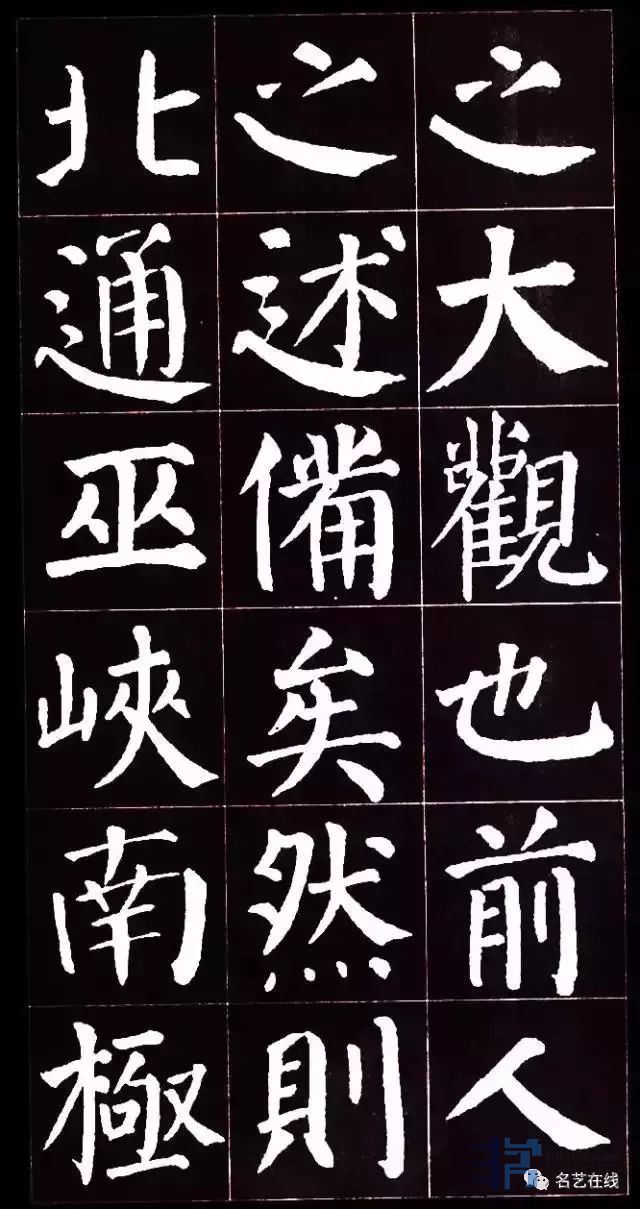 之大觀也前人
之述備矣然則
北通巫峽南極
名艺在线